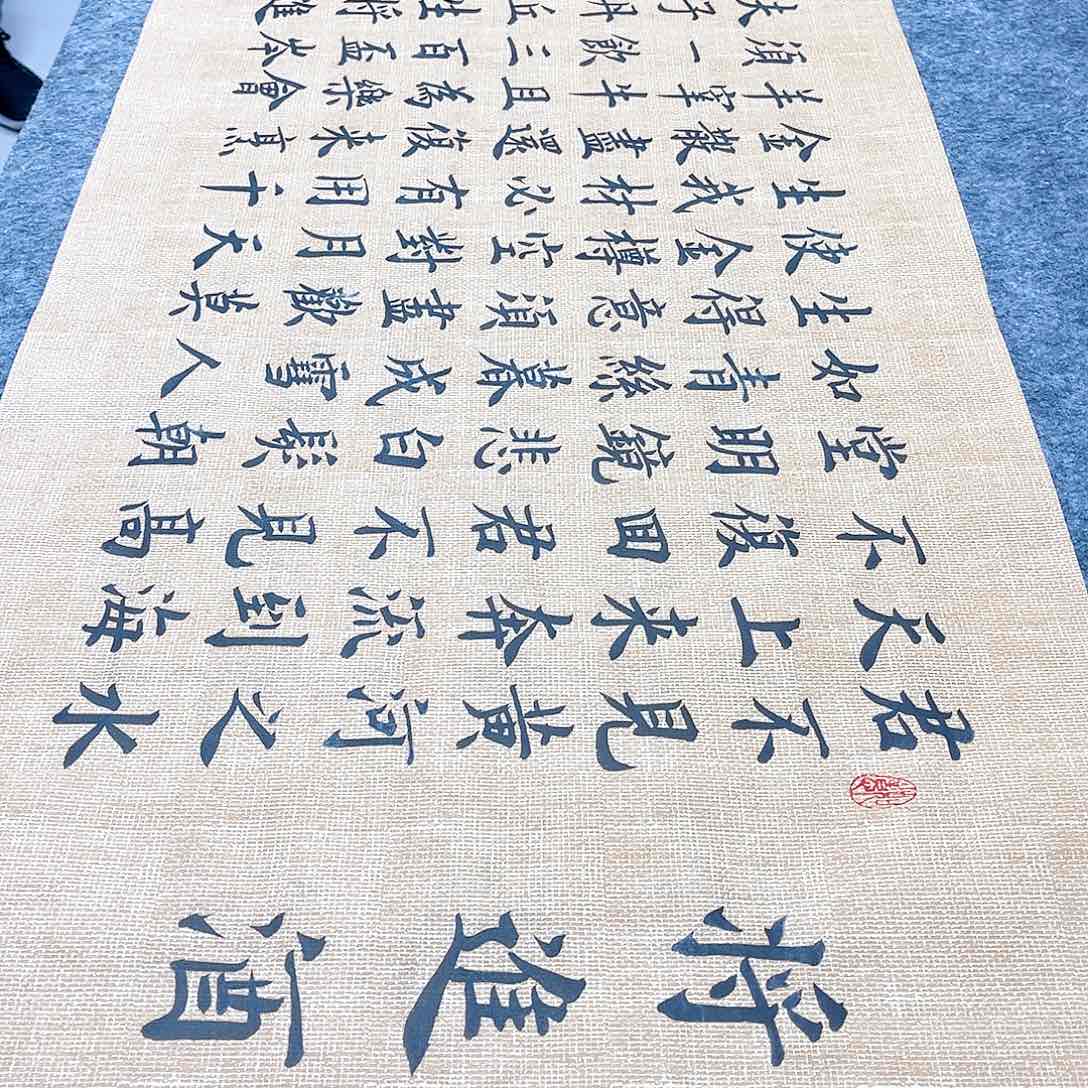 将進酒
君不見黄河之水
天上来奔流到海
不復回君不見高
堂明鏡悲白髮朝
如青絲暮成雪人
生得意須盡歡莫
使金樽空對月天
生我材必有用千
金散盡還復来烹
羊宰牛且為樂會
須一飲三百盃岑
夫子丹丘生将進